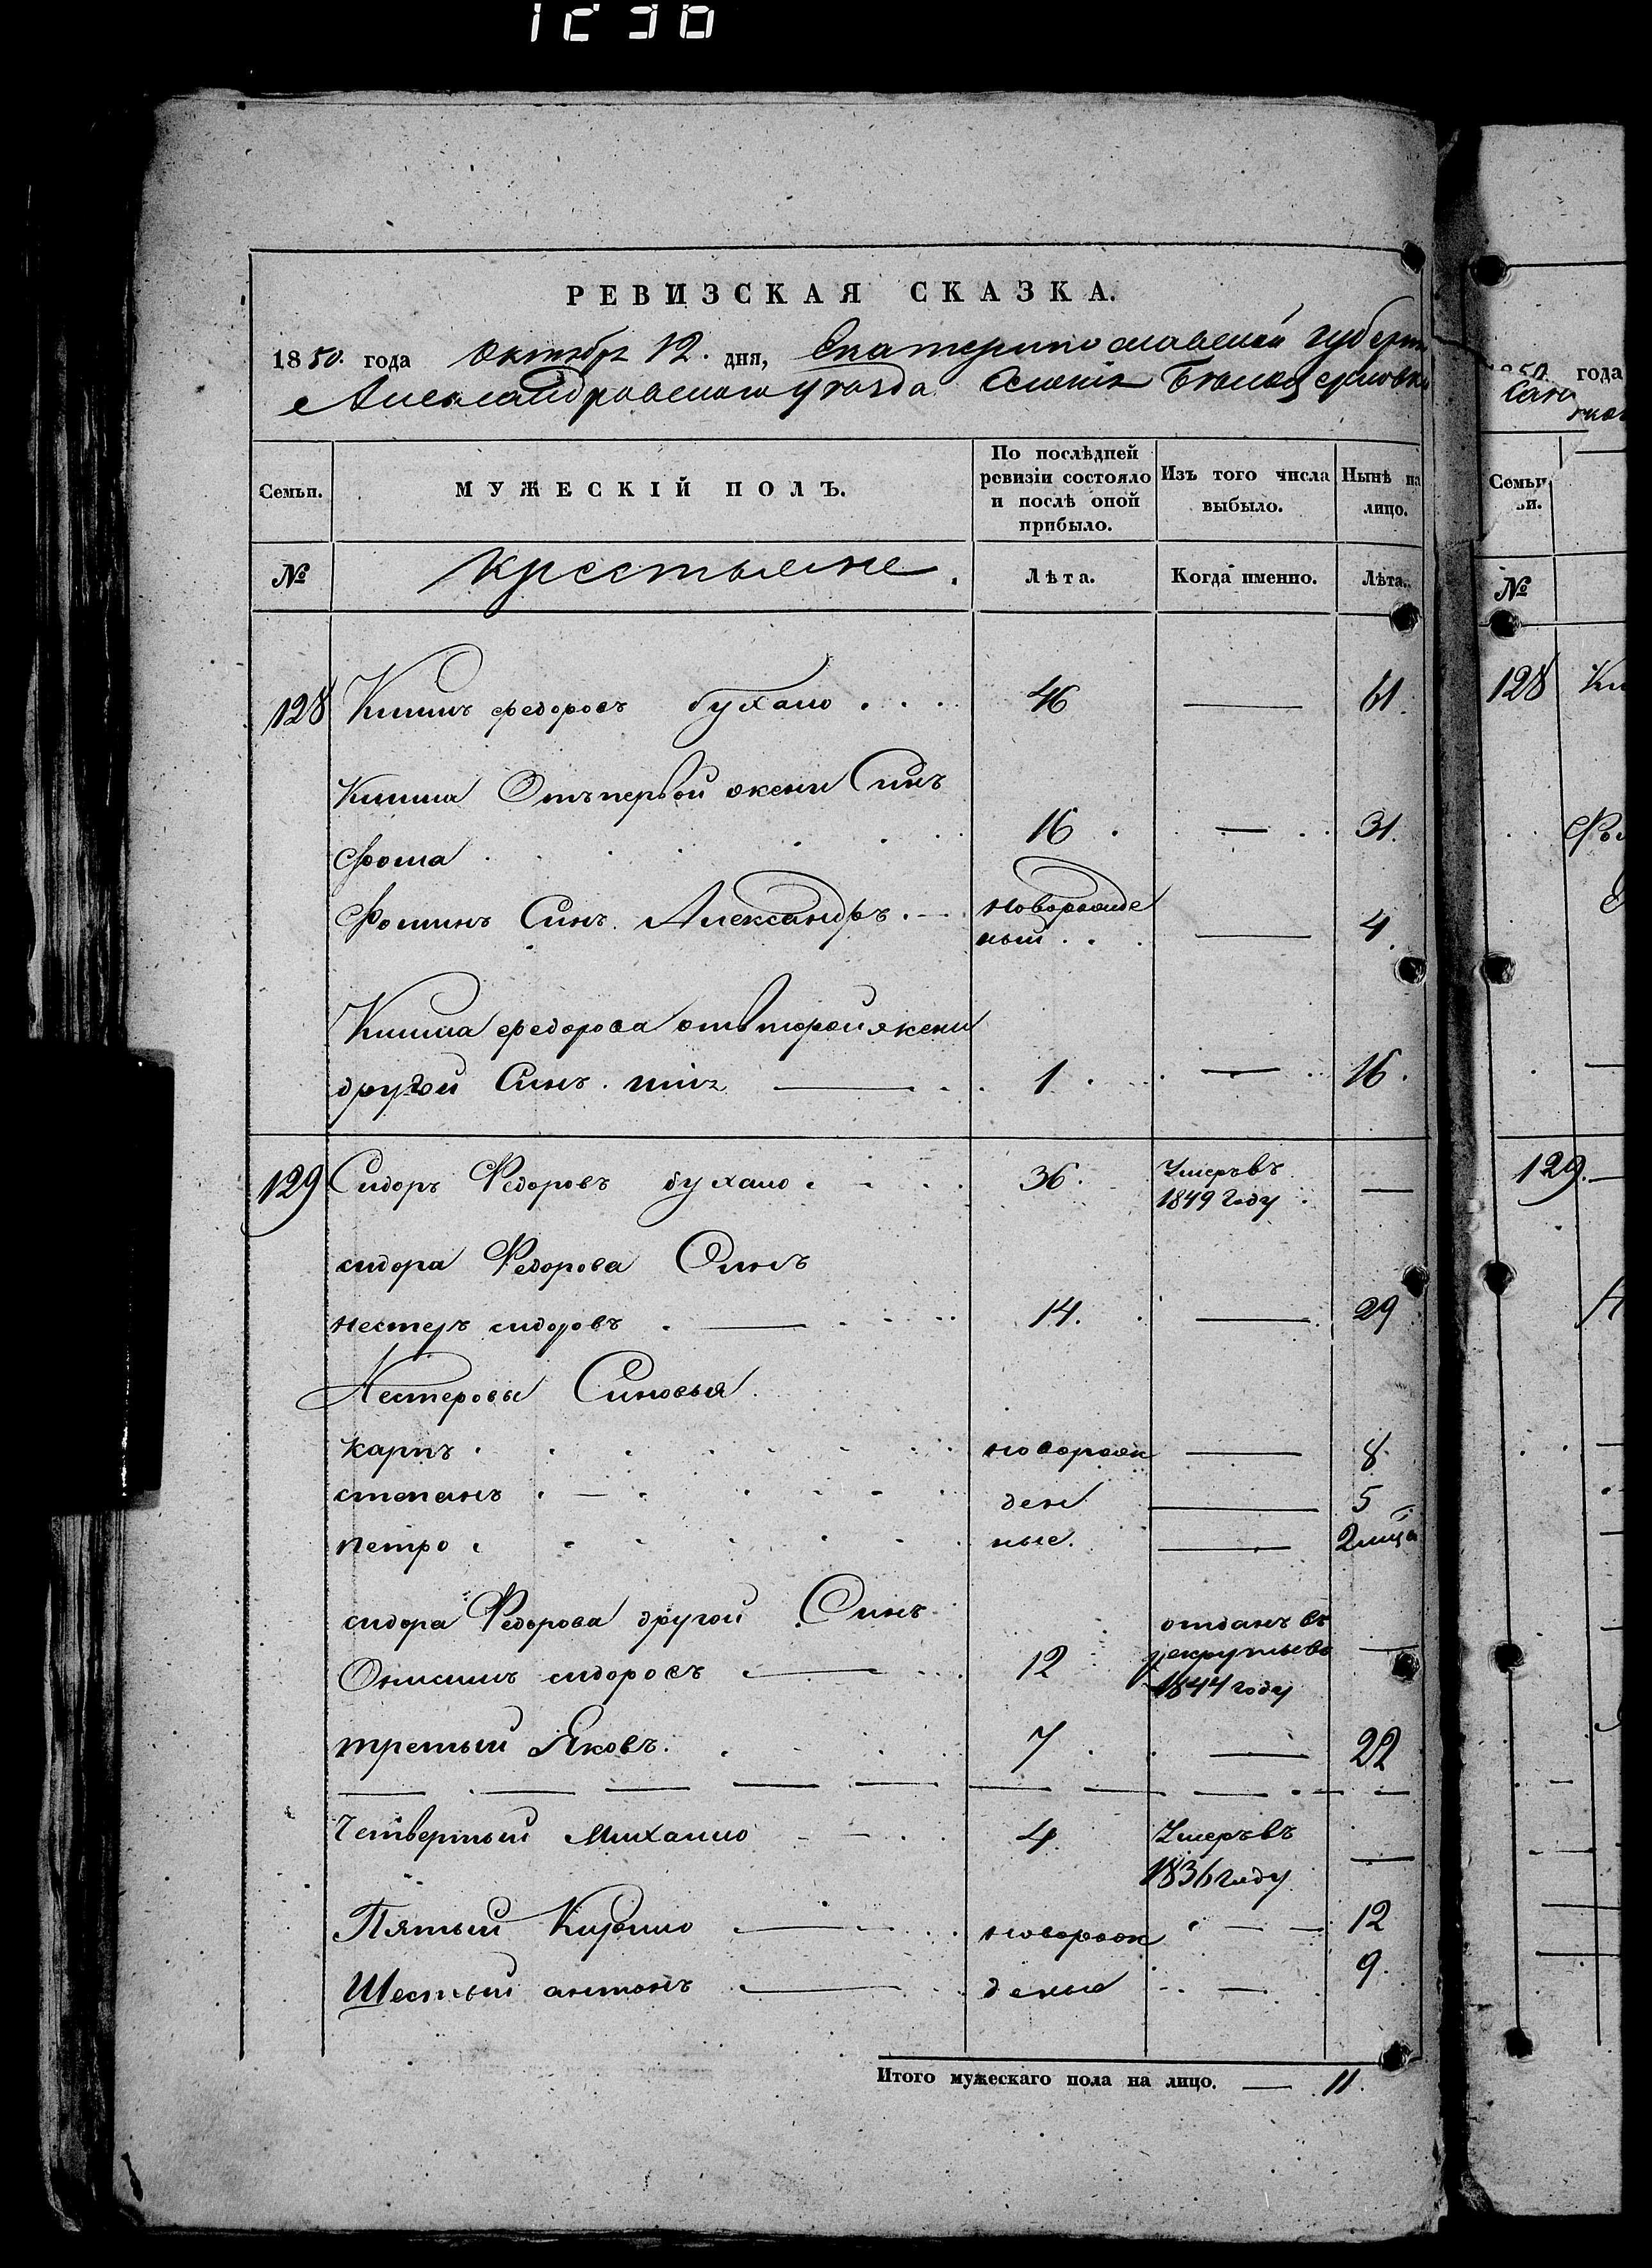 1230
РЕВИЗСКАЯ СКАЗКА.
1850. года Октября 12. дня, Екатеринославской губерни
Александровского уезда
Семьи. МУЖЕСКІЙ ПОЛЪ. По послѣдней ревизіи состояло и послѣ оной прибыло. Изъ того числа выбыло. Нынѣ на лицо.
№ крестьяне. Лѣта. Когда именно. Лѣта.
128 Климъ федоровъ бухало . . . 46 — 61.
Клима Отъ первой жени Синъ
фома . . . . . 16 . — . . 31.
Фоминъ Синъ. Александръ . — новорожде
ный . . — 4.
Клима федорова отвторой жени
другой Синъ. — . . 1 . — . . 16.
129 Сидоръ Федоровъ бухало . . . 36. Умеръ въ
1849 году . —
сидора Федорова Синъ
нестеръ сидоровъ . — . . . 14. — 29
Нестеровы Синовья.
карпъ . . . . . . новорож — 8.
степанъ . — . . . . ден — 5
петро . . . . . . ные. — 2 мца
сидора Федорова другой Синъ
Онисимъ сидоровъ — . . 12 отданъ въ
рекрутыв
1844 году —
третый Яковъ. . . . 7 . . — 22
Четвертый Михаило — . . 4. Умеръ въ
1836 году. —
Пятый Кирило — . . новорож . — — 12
Шестый антонъ — . . деные . — . 9.
Итого мужескаго пола на лицо. — 11.
года
Семьи.
№
128
129.